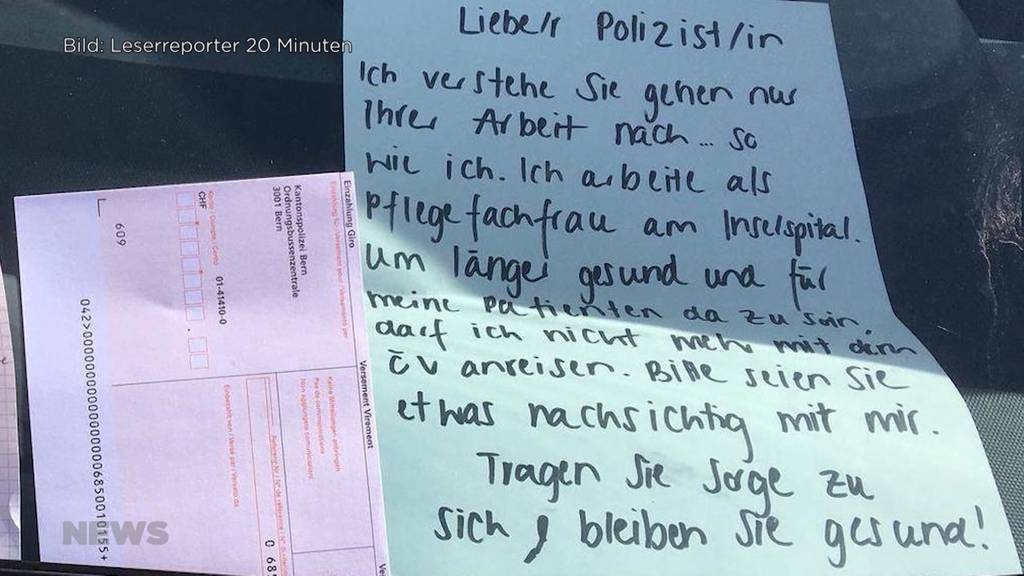 Bild: Leserreporter 20 Minuten
Liebe/r Polizist/in
Ich verstehe Sie gehen nur
Ihrer Arbeit nach... so
wie ich. Ich arbeite als
Pflegefachfrau am Inselspital.
Um länger gesund und für
meine Patienten da zu sein,
darf ich nicht mehr mit dem
ÖV anreisen. Bitte seien Sie
etwas nachsichtig mit mir.
Tragen Sie Sorge zu
sich, bleiben Sie gesund!
Einzahlung Giro
Versement Virement
Kantonspolizei Bern
Ordnungsbussenzentrale
3001 Bern
01-41410-0
CHF
Keine Mitteilungen anbringen
Pas de communications
Non aggiungete comunicazioni
609
NEWS